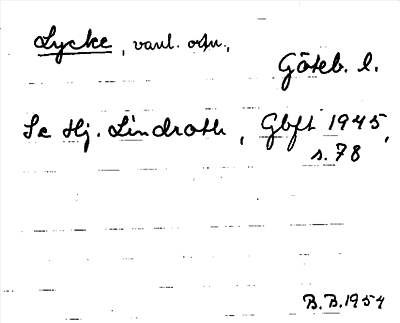 Lycke, vanl. ortn.,
Göteb. l.
Se Hj. Lindroth, Gbft 1945,
s. 78
B.B. 1954